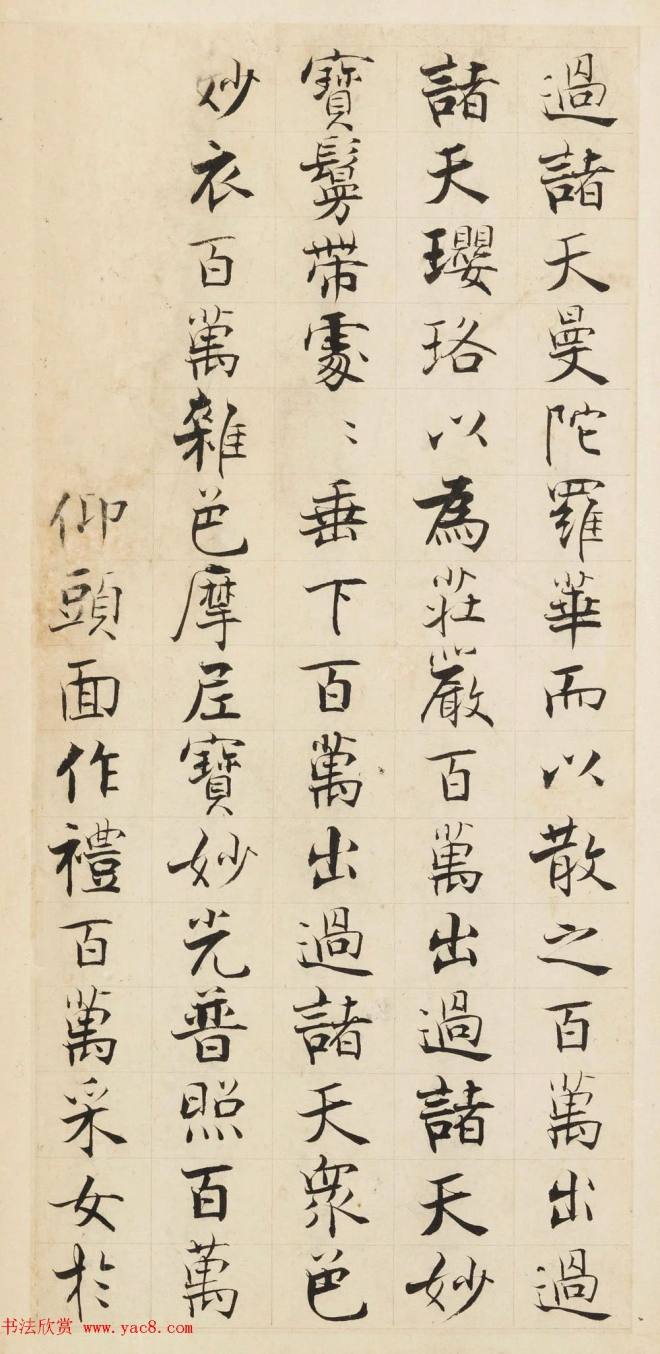 過諸天曼陀羅華而以散之百萬出過
諸天瓔珞以為莊嚴百萬出過諸天妙
寶鬘帶處〻垂下百萬出過諸天衆色
妙衣百萬雜色摩尼寶妙光普照百萬
仰頭面作禮百萬采女於
书法欣赏 www.yac8.com